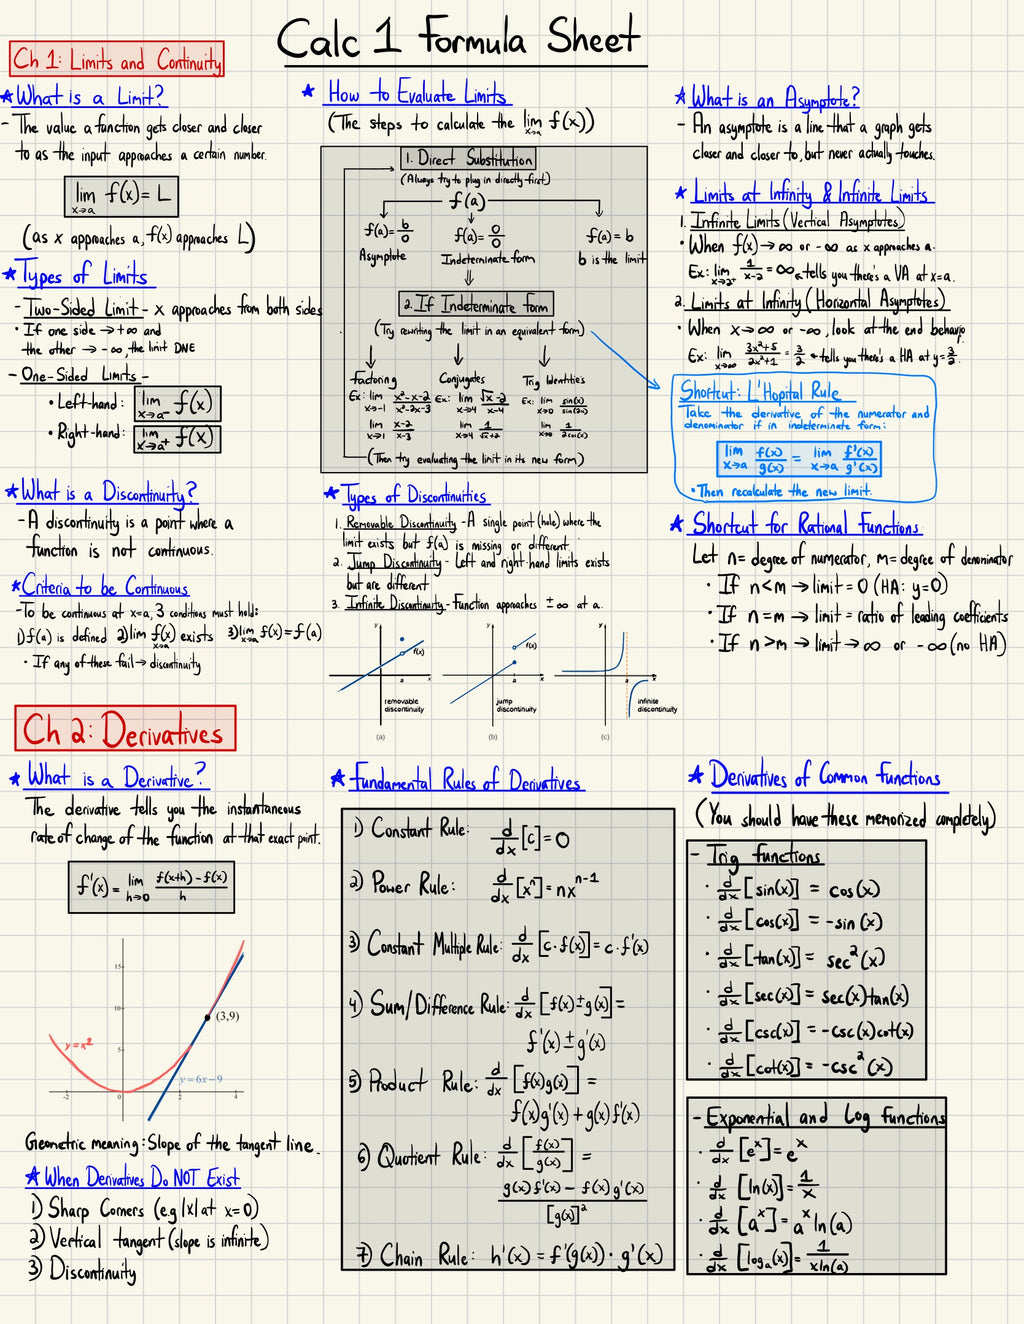 Calc 1 Formula Sheet
Ch 1: Limits and Continuity
★ What is a Limit?
- The value a function gets closer and closer
to as the input approaches a certain number.
lim x→a f(x) = L
(as x approaches a, f(x) approaches L)
★ Types of Limits
- Two-Sided Limit - x approaches from both sides
• If one side → +∞ and
the other → -∞, the limit DNE
- One-Sided Limits -
• Left-hand: lim x→a⁻ f(x)
• Right-hand: lim x→a⁺ f(x)
★ What is a Discontinuity?
- A discontinuity is a point where a
function is not continuous.
★ Criteria to be Continuous
- To be continuous at x=a, 3 conditions must hold:
1) f(a) is defined 2) lim x→a f(x) exists 3) lim x→a f(x) = f(a)
• If any of these fail → discontinuity
★ How to Evaluate Limits
(The steps to calculate the lim x→a f(x))
1. Direct Substitution
(Always try to plug in directly first)
f(a)
f(a) = b/0 f(a) = 0/0 f(a) = b
Asymptote Indeterminate form b is the limit
2. If Indeterminate form
(Try rewriting the limit in an equivalent form)
Factoring Conjugates Trig Identities
Ex: lim x→-1 x²-x-2/x²-2x-3 Ex: lim x→4 √x-2/x-4 Ex: lim x→0 sin(x)/sin(2x)
lim x→1 x-2/x-3 lim x→4 1/√x+2 lim x→0 1/2cos(x)
(Then try evaluating the limit in its new form)
★ Types of Discontinuities
1. Removable Discontinuity - A single point (hole) where the
limit exists but f(a) is missing or different.
2. Jump Discontinuity - Left and right-hand limits exists
but are different
3. Infinite Discontinuity - Function approaches ±∞ at a.
y y y
f(x) f(x)
a x a x a x
removable discontinuity jump discontinuity infinite discontinuity
(a) (b) (c)
★ What is an Asymptote?
- An asymptote is a line that a graph gets
closer and closer to, but never actually touches.
★ Limits at Infinity & Infinite Limits
1. Infinite Limits (Vertical Asymptotes)
• When f(x) → ∞ or -∞ as x approaches a.
Ex: lim x→2⁺ 1/x-2 = ∞ ← tells you there's a VA at x=a.
2. Limits at Infinity (Horizontal Asymptotes)
• When x → ∞ or -∞, look at the end behavior
Ex: lim x→∞ 3x²+5/2x²+1 = 3/2 ← tells you there's a HA at y=3/2.
Shortcut: L'Hopital Rule
Take the derivative of the numerator and
denominator if in indeterminate form:
lim x→a f(x)/g(x) = lim x→a f'(x)/g'(x)
• Then recalculate the new limit.
★ Shortcut for Rational Functions
Let n = degree of numerator, m = degree of denominator
• If n<m → limit = 0 (HA: y=0)
• If n=m → limit = ratio of leading coefficients
• If n>m → limit → ∞ or -∞ (no HA)
Ch 2: Derivatives
★ What is a Derivative?
The derivative tells you the instantaneous
rate of change of the function at that exact point.
f'(x) = lim h→0 f(x+h) - f(x)/h
15
10
5
(3,9)
y=x²
y=6x-9
-2 0 2 4
Geometric meaning: Slope of the tangent line.
★ When Derivatives Do NOT Exist
1) Sharp Corners (e.g |x| at x=0)
2) Vertical tangent (slope is infinite)
3) Discontinuity
★ Fundamental Rules of Derivatives
1) Constant Rule: d/dx [c] = 0
2) Power Rule: d/dx [xⁿ] = nxⁿ⁻¹
3) Constant Multiple Rule: d/dx [c·f(x)] = c·f'(x)
4) Sum/Difference Rule: d/dx [f(x) ± g(x)] =
f'(x) ± g'(x)
5) Product Rule: d/dx [f(x)g(x)] =
f(x)g'(x) + g(x)f'(x)
6) Quotient Rule: d/dx [f(x)/g(x)] =
g(x)f'(x) - f(x)g'(x)/[g(x)]²
7) Chain Rule: h'(x) = f'(g(x)) · g'(x)
★ Derivatives of Common Functions
(You should have these memorized completely)
- Trig functions
• d/dx [sin(x)] = cos(x)
• d/dx [cos(x)] = -sin(x)
• d/dx [tan(x)] = sec²(x)
• d/dx [sec(x)] = sec(x)tan(x)
• d/dx [csc(x)] = -csc(x)cot(x)
• d/dx [cot(x)] = -csc²(x)
- Exponential and Log functions
• d/dx [eˣ] = eˣ
• d/dx [ln(x)] = 1/x
• d/dx [aˣ] = aˣ ln(a)
• d/dx [logₐ(x)] = 1/xln(a)